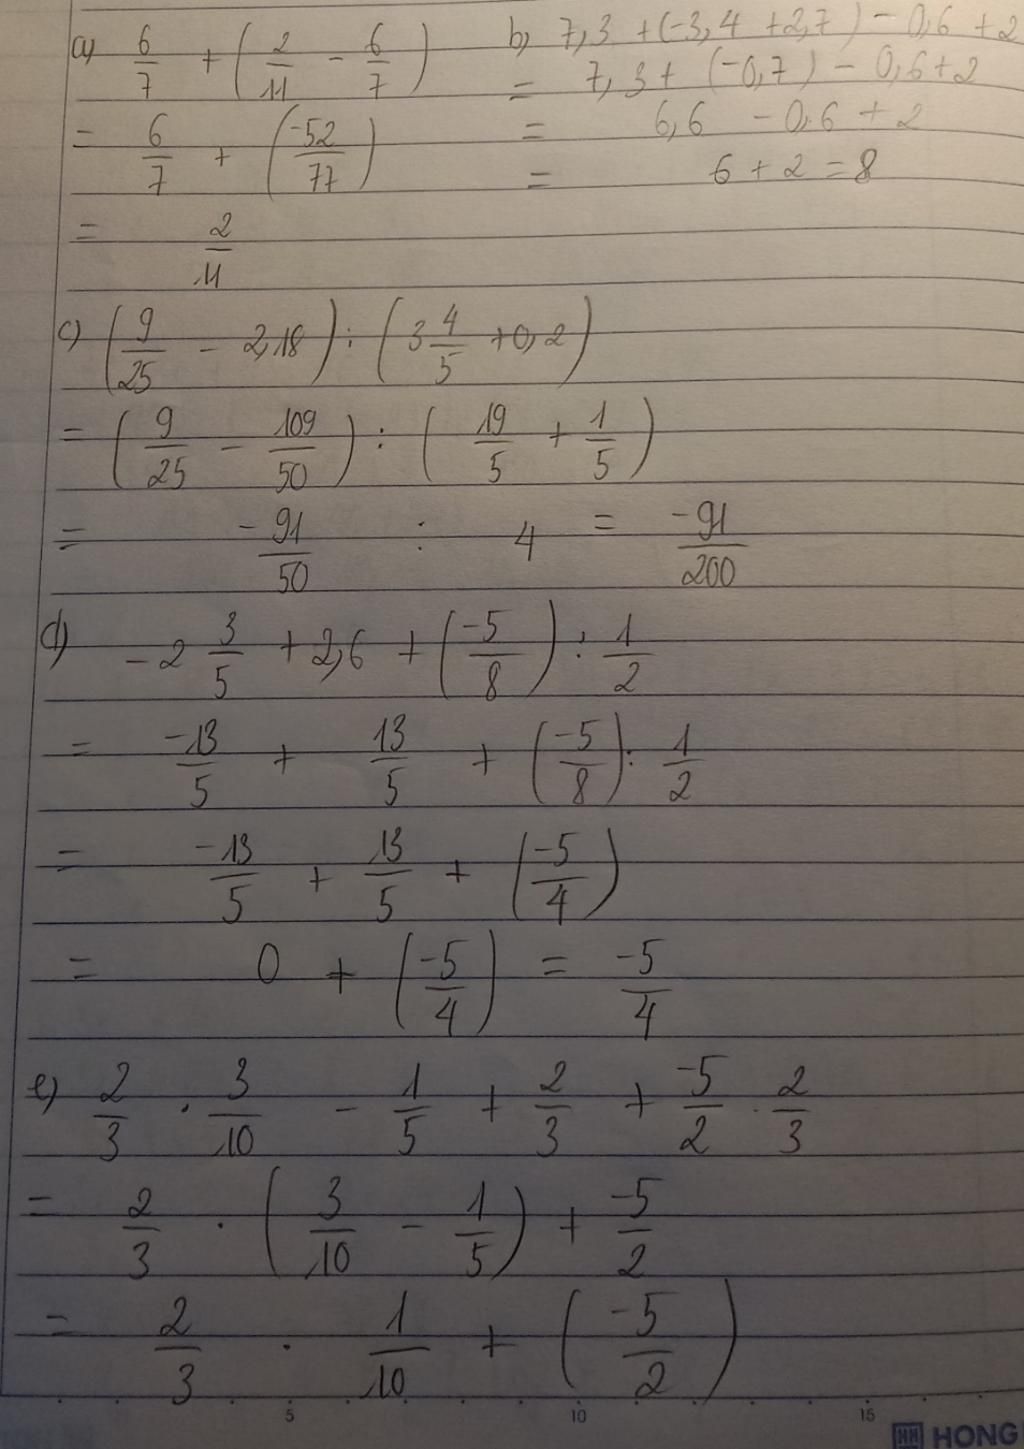 a) 6/7 + (2/11 - 6/7)
= 6/7 + (-52/77)
= 2/11
b) 7,3 + (-3,4 + 2,7) - 0,6 + 2
= 7,3 + (-0,7) - 0,6 + 2
= 6,6 - 0,6 + 2
= 6 + 2 = 8
c) (9/25 - 2,18) : (3 4/5 + 0,2)
= (9/25 - 109/50) : (19/5 + 1/5)
= -91/50 : 4 = -91/200
d) -2 3/5 + 2,6 + (-5/8) : 1/2
= -13/5 + 13/5 + (-5/8) : 1/2
= -13/5 + 13/5 + (-5/4)
= 0 + (-5/4) = -5/4
e) 2/3 . 3/10 - 1/5 + 2/3 + -5/2 . 2/3
= 2/3 . (3/10 - 1/5) + -5/2
= 2/3 . 1/10 + (-5/2)
5 10 15
HONG